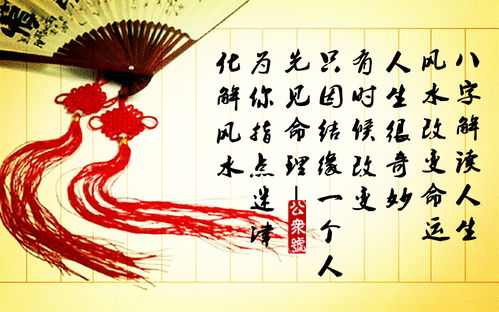 八字解读人生
风水改变命运
人生很奇妙
有时候改变
只因结缘一个人
先见命理—公衆號
为你指点迷津
化解风水